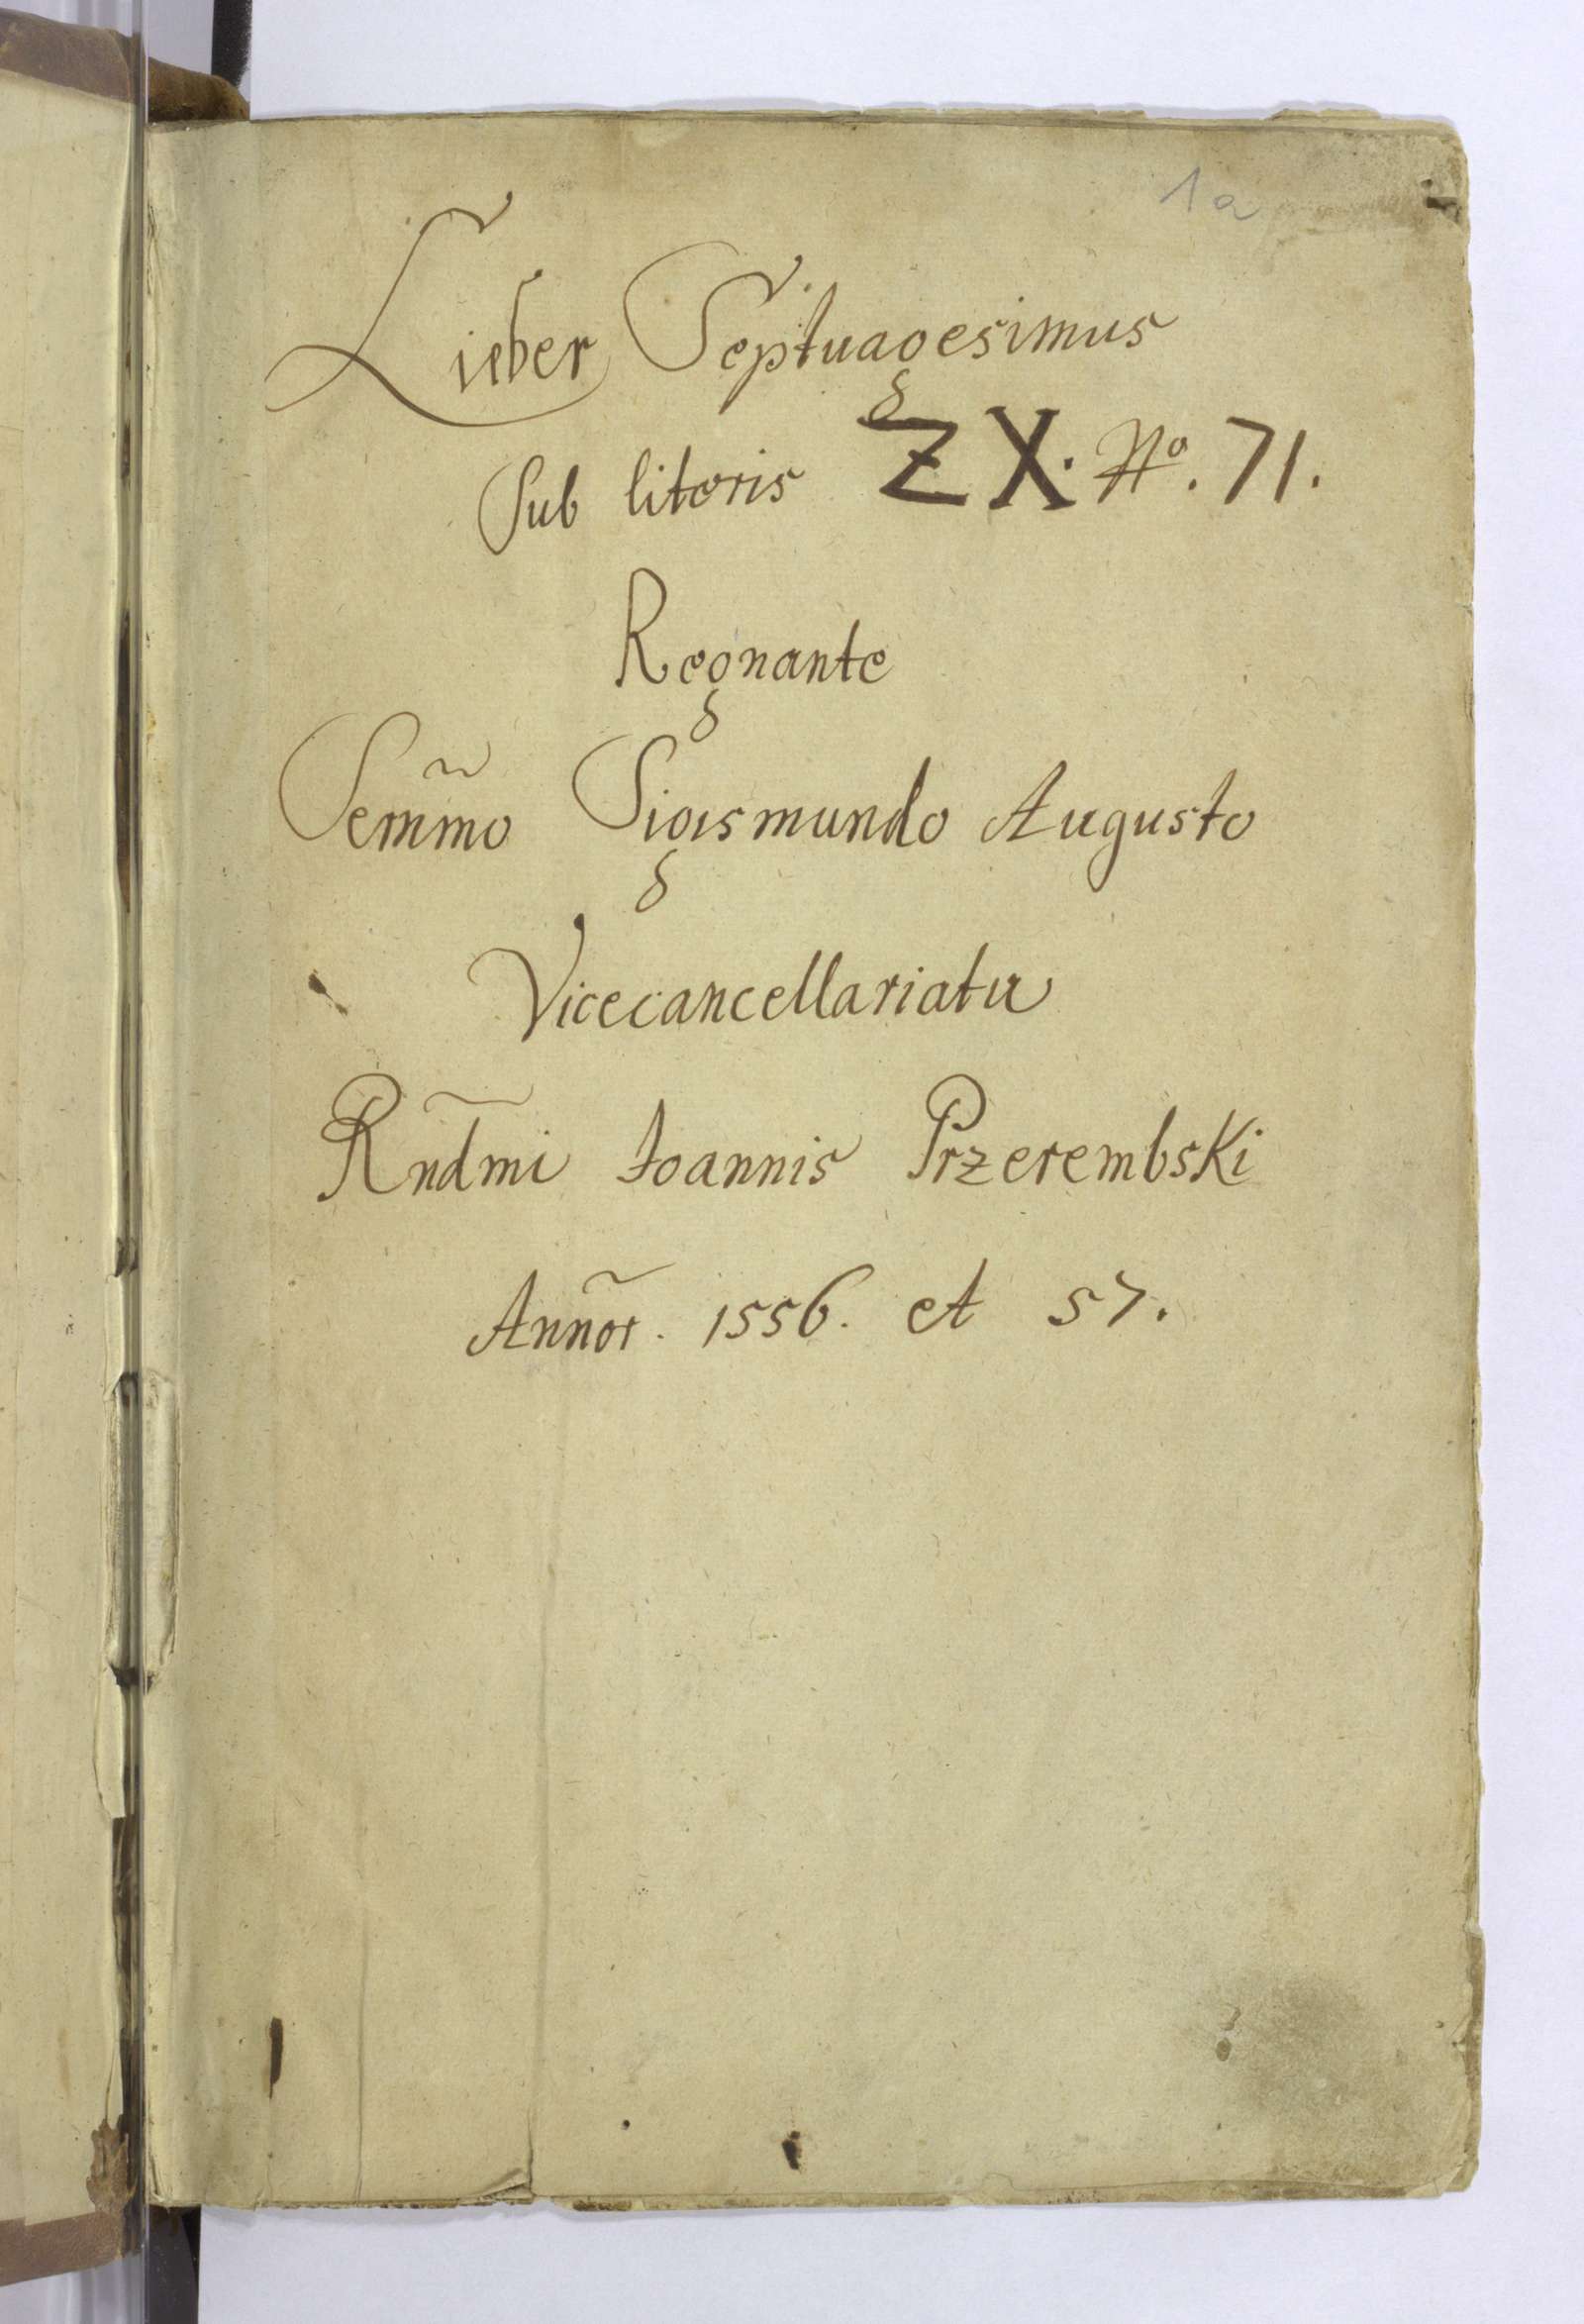 1a
Lieber Septuagesimus
Sub literis ZX. No. 71.
Regnante
Sermo Sigismundo Augusto
Vicecancellariatu
Rndmi Ioannis Przerembski
Annor. 1556. et 57.